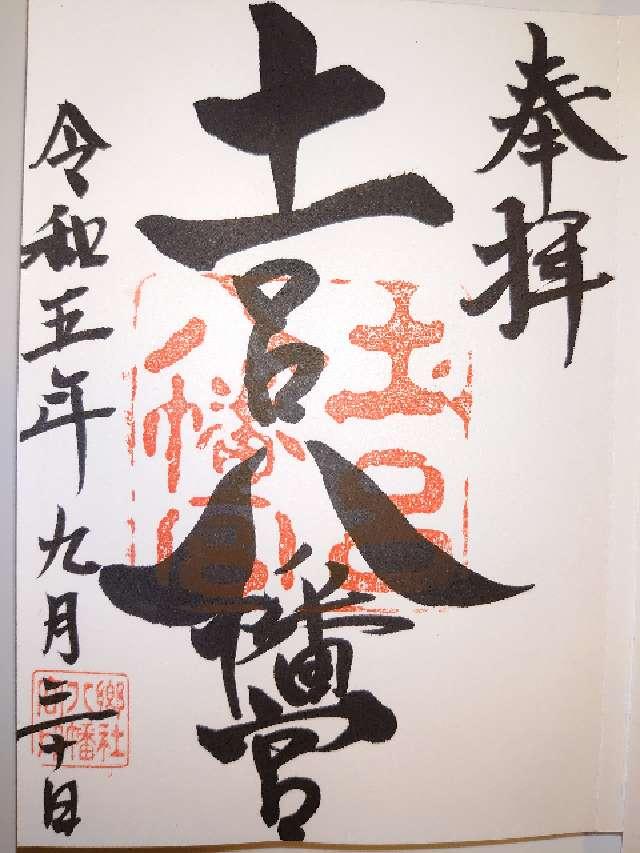 奉拝
土呂八幡宮
土呂
八幡宮
令和五年九月三十日
郷社
八幡
宮印